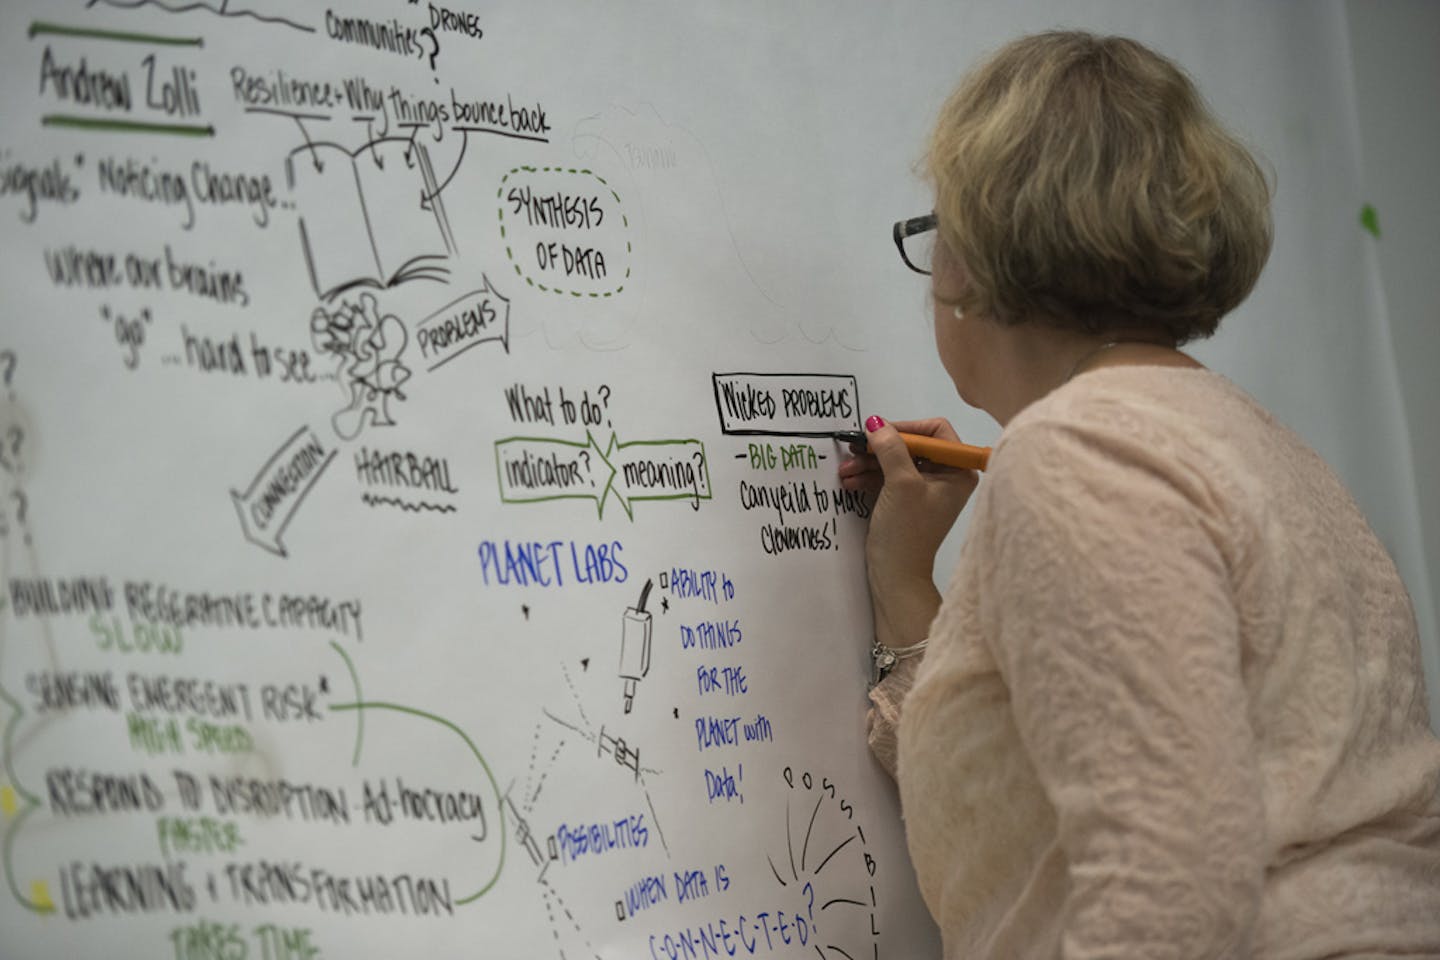 DRONES
Communities?
Andrew Zolli
Resilience + Why things bounce back
Signals" Noticing Change...
where our brains
"go" ...hard to see...
SYNTHESIS
OF DATA
PROBLEMS
CONNECTION
HAIRBALL
What to do?
indicator? meaning?
WICKED PROBLEMS
- BIG DATA -
Can yeild to Mass
cleverness!
PLANET LABS
ABILITY to
DO THINGS
FOR THE
PLANET with
Data!
POSSIBILITIES
WHEN DATA IS
C-O-N-N-E-C-T-E-D?
POSSIBIL
BUILDING REGERATIVE CAPACITY
SLOW
SENSING EMERGENT RISK*
HIGH SPEED
RESPOND TO DISRUPTION - Ad-hocracy
FASTER
LEARNING + TRANSFORMATION
TAKES TIME
?
?
?